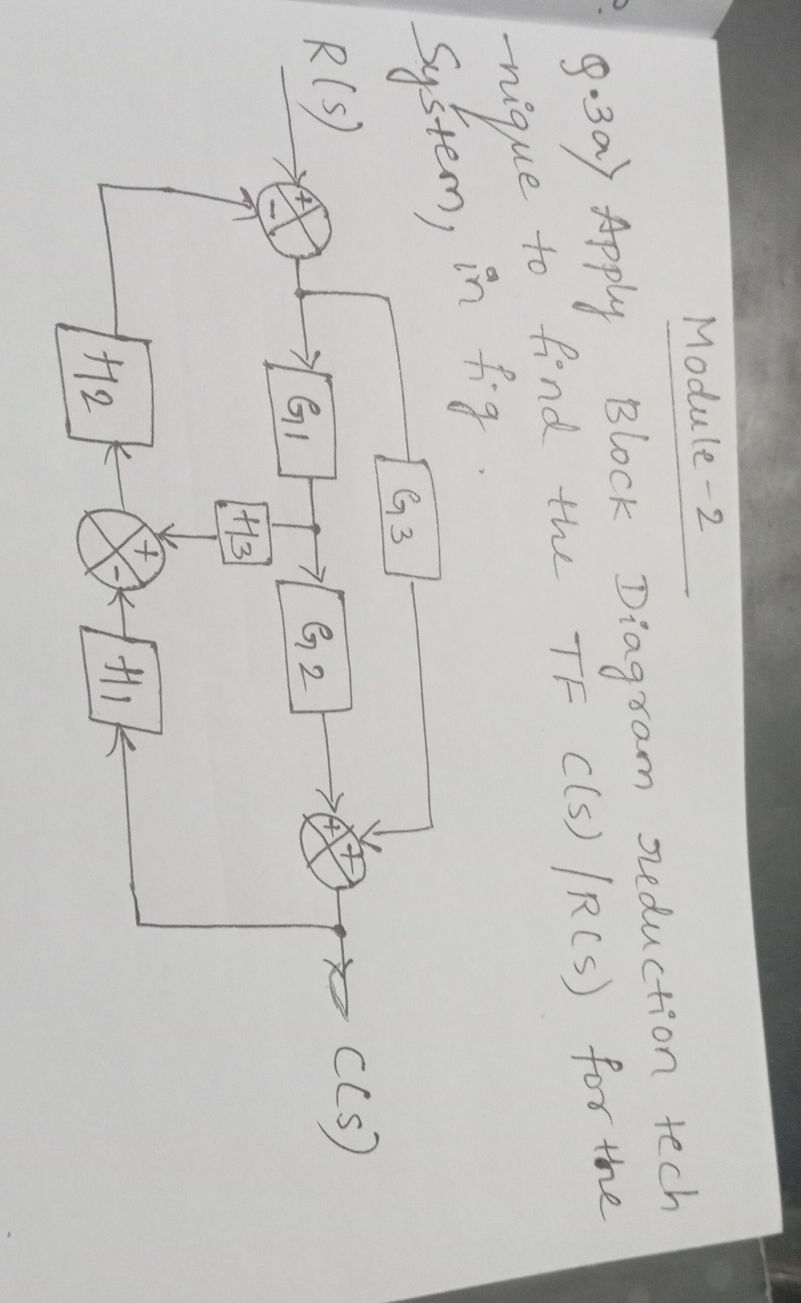 Module-2
Q.3a) Apply Block Diagram reduction tech
-nique to find the TF C(s)/R(s) for the
System, in fig.
G3
R(s) + - G1 G2 + + C(s)
H3
H2 + - H1